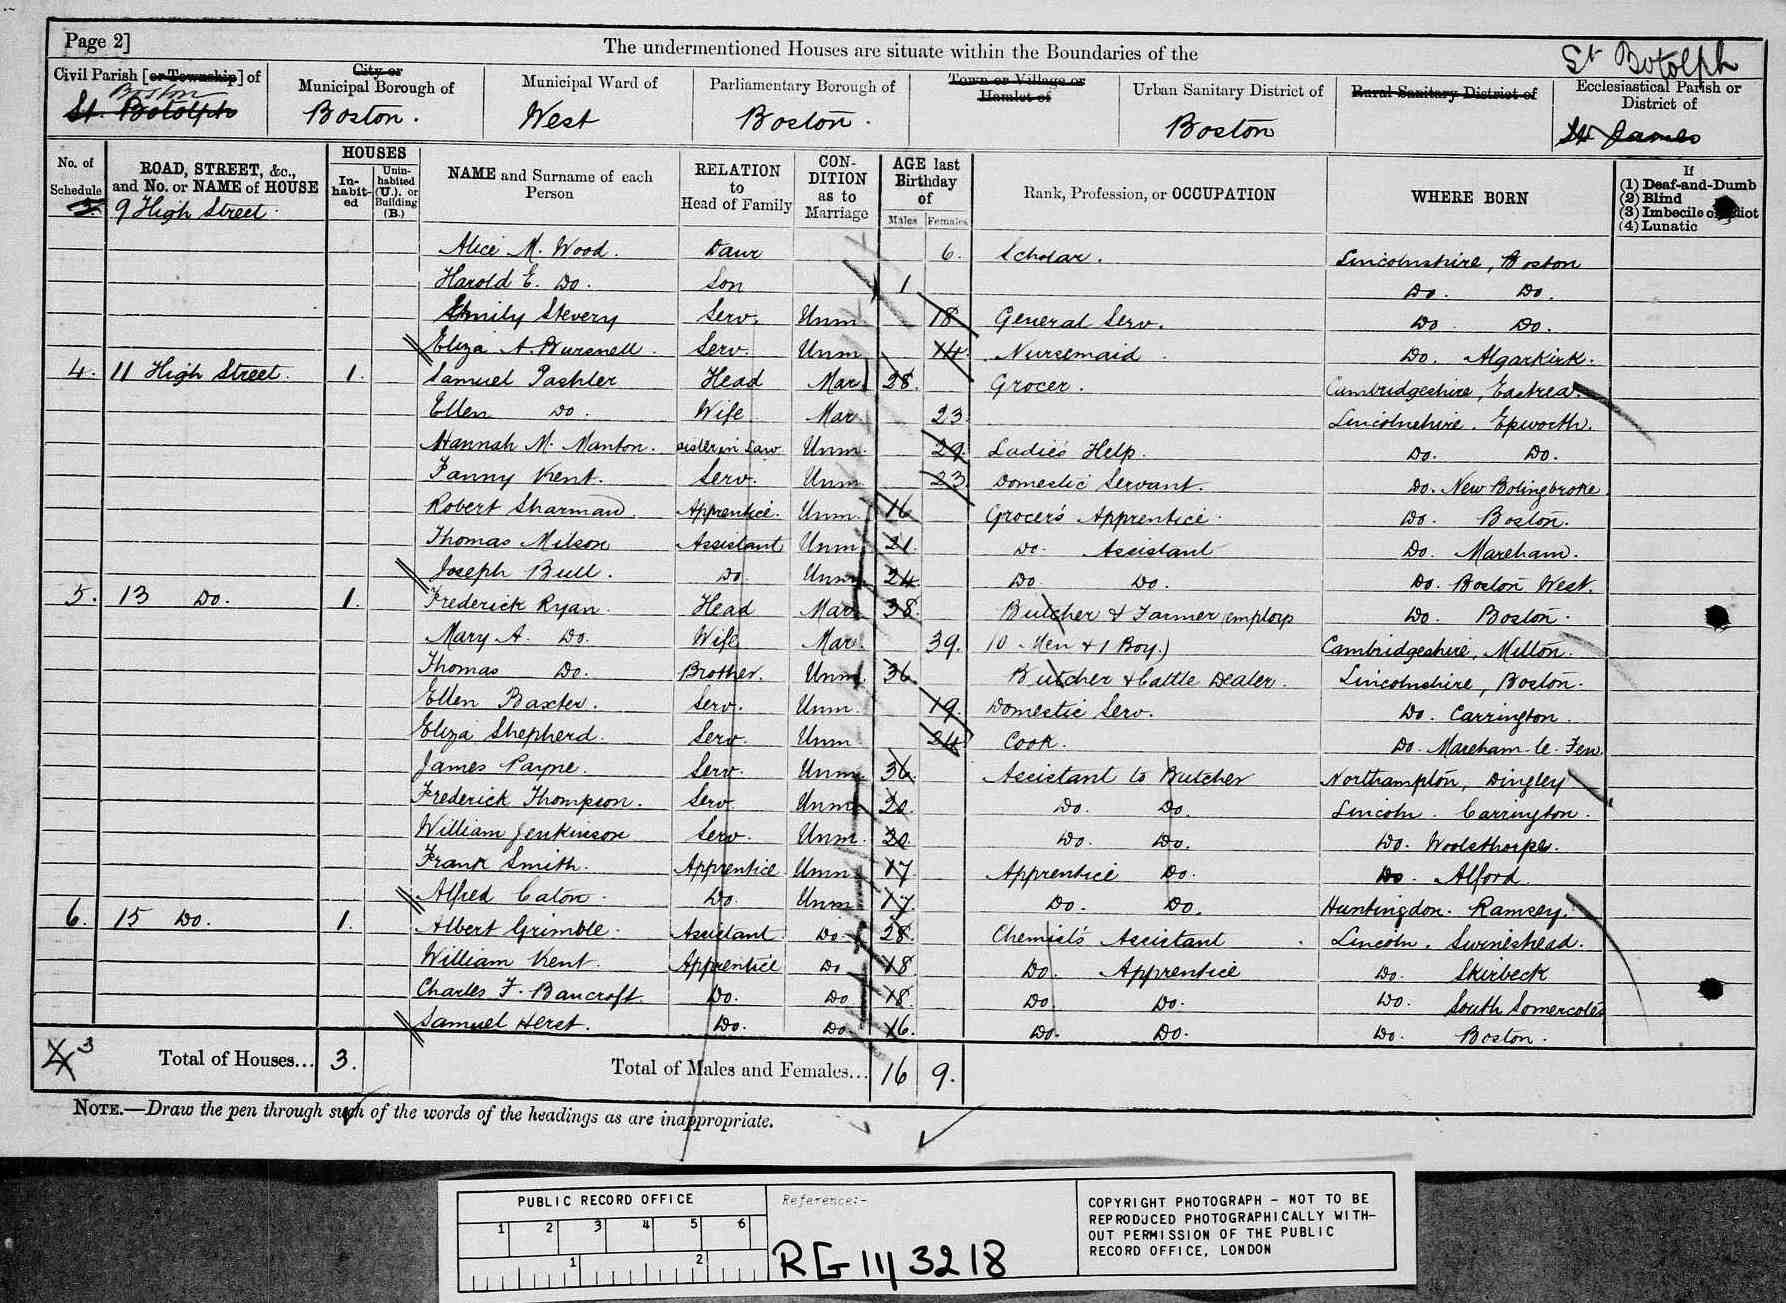 Page 2]
The undermentioned Houses are situate within the Boundaries of the
Civil Parish [or Township] of
Boston
St. Botolph
City or
Municipal Borough of
Boston.
Municipal Ward of
West
Parliamentary Borough of
Boston.
Town or Village or
Hamlet of
Urban Sanitary District of
Boston
Rural Sanitary District of
St Botolph
Ecclesiastical Parish or
District of
St James
No. of
Schedule
ROAD, STREET, &c.,
and No. or NAME of HOUSE
HOUSES
In-
habit-
ed
Unin-
habited
(U.), or
Building
(B.)
NAME and Surname of each
Person
RELATION
to
Head of Family
CON-
DITION
as to
Marriage
AGE last
Birthday
of
Males Females
Rank, Profession, or OCCUPATION
WHERE BORN
If
(1) Deaf-and-Dumb
(2) Blind
(3) Imbecile or Idiot
(4) Lunatic
3 9 High Street.
Alice M. Wood. Daur 6. Scholar. Lincolnshire, Boston
Harold E. Do. Son 1 Do. Do.
Emily Stevery Serv. Unm. 18 General Serv. Do Do.
Eliza A. Bursnell. Serv. Unm 14. Nursemaid. Do. Algarkirk.
4. 11 High Street. 1. Samuel Pashler Head Mar 28. Grocer. Cambridgeshire, Eastrea.
Ellen Do. Wife Mar 23. Lincolnshire. Epworth.
Hannah M. Manton. Sister in Law Unm. 29. Ladies Help. Do. Do.
Fanny Kent. Serv. Unm 23. Domestic Servant. Do. New Bolingbroke.
Robert Sharman Apprentice. Unm. 16 Grocer's Apprentice. Do. Boston.
Thomas Milson Assistant Unm 21. Do. Assistant Do. Mareham.
Joseph Bull. Do Unm 24 Do. Do. Do. Boston West.
5. 13 Do. 1. Frederick Ryan. Head Mar. 38. Butcher & Farmer (employs Do. Boston.
Mary A. Do. Wife Mar. 39. 10 Men & 1 Boy.) Cambridgeshire, Milton.
Thomas Do. Brother. Unm. 36. Butcher & Cattle Dealer. Lincolnshire, Boston.
Ellen Baxter. Serv. Unm. 19. Domestic Serv. Do. Carrington.
Eliza Shepherd. Serv. Unm 24. Cook. Do. Mareham-le-Fen.
James Payne. Serv. Unm 36 Assistant to Butcher Northampton, Dingley
Frederick Thompson. Serv. Unm 20. Do. Do. Lincoln. Carrington.
William Jenkinson Serv. Unm. 20. Do. Do. Do. Woolsthorpe.
Frank Smith. Apprentice Unm 17. Apprentice Do. Do. Alford.
Alfred Caton. Do. Unm 17 Do. Do. Huntingdon. Ramsey.
6. 15 Do. 1. Albert Grimble. Assistant Do 28. Chemist's Assistant. Lincoln. Swineshead.
William Kent. Apprentice Do 18 Do. Apprentice Do. Skirbeck
Charles F. Bancroft. Do. Do 18. Do. Do. Do. South Somercotes
Samuel Herst. Do. Do. 16. Do. Do. Do. Boston.
4 3 Total of Houses... 3. Total of Males and Females... 16 9.
NOTE.—Draw the pen through such of the words of the headings as are inappropriate.
PUBLIC RECORD OFFICE
1 2 3 4 5 6
1 2
Reference:-
RG 11/3218
COPYRIGHT PHOTOGRAPH - NOT TO BE
REPRODUCED PHOTOGRAPHICALLY WITH-
OUT PERMISSION OF THE PUBLIC
RECORD OFFICE, LONDON